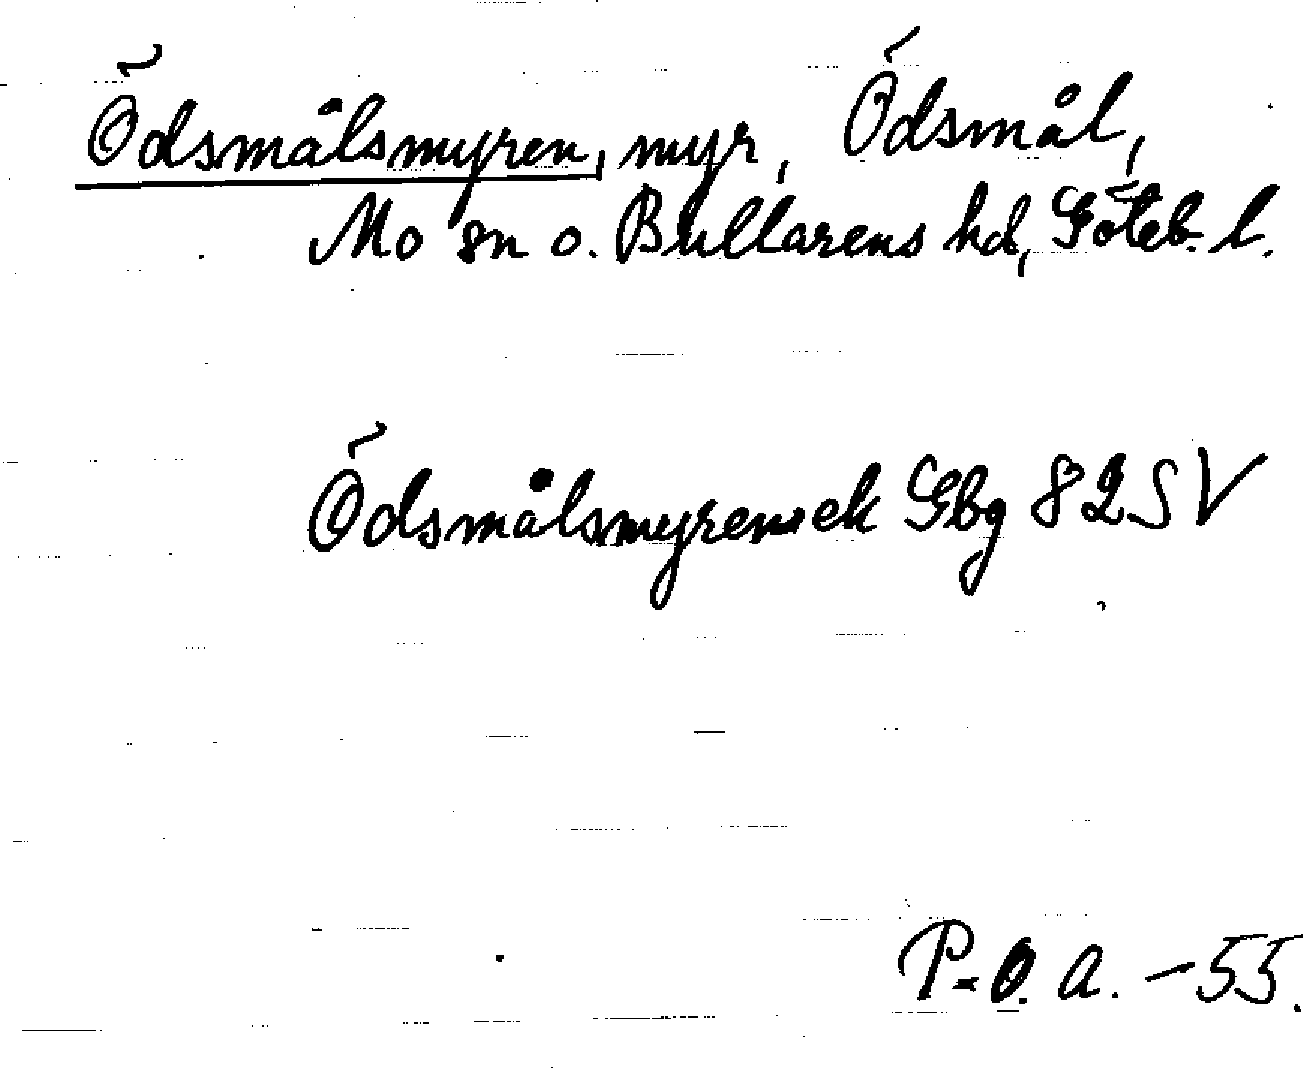 Ödsmålsmyren, myr, Ödsmål,
Mo sn o. Bullarens hd, Göteb. l.
Ödsmålsmyren ek Gbg 82 SV
P.O. A. -55.